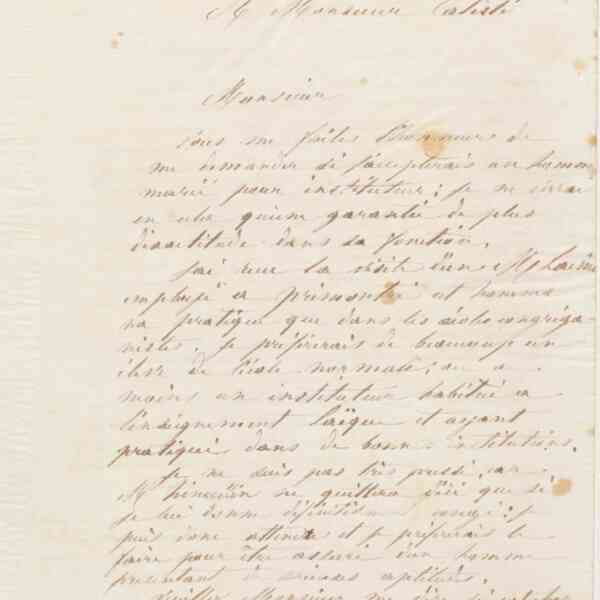 A Monsieur
Monsieur
Vous me faites l'honneur de
me demander si j'accepterais un homm
marié pour instituteur; je ne verrai
en cela qu'une garantie de plus
d'exactitude dans sa fonction.
J'ai reçu la visite d'un M
employé a Prémontré cet homme
na pratiqué que dans les écoles congréga-
nistes. Je préférerais de beaucoup un
élève de l'école normale; ou a
moins un instituteur habitué a
l'enseignement laïque et ayant
pratiqué dans de bonne institutions.
Je ne suis pas très pressé, car
M ne quittera que si
je lui donne définitive congé; je
puis donc attendre et je préférerais le
faire pour être assuré d'un homme
présentant de sérieuses aptitudes.
Veuillez Monsieur me dire si